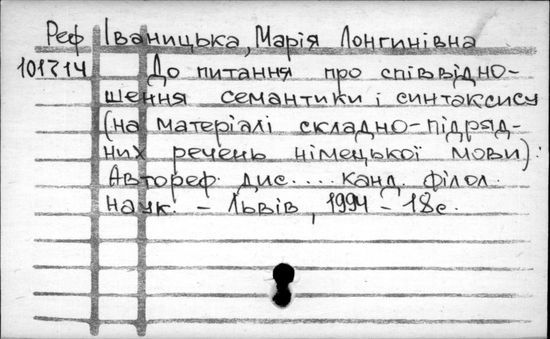 Реф Іваницька, Марія Лонгинівна
101714 До питання про співвідно-
шення семантики і синтаксису
(на матеріалі складно-підряд-
них речень німецької мови):
Автореф. дис. .... канд. філол.
наук. - Львів, 1994 - 18с.